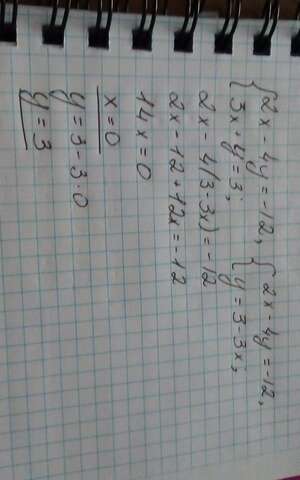 {2x - 4y = -12, {2x - 4y = -12,
{3x + y = 3; {y = 3 - 3x;
2x - 4(3 - 3x) = -12
2x - 12 + 12x = -12
14x = 0
x = 0
y = 3 - 3 · 0
y = 3